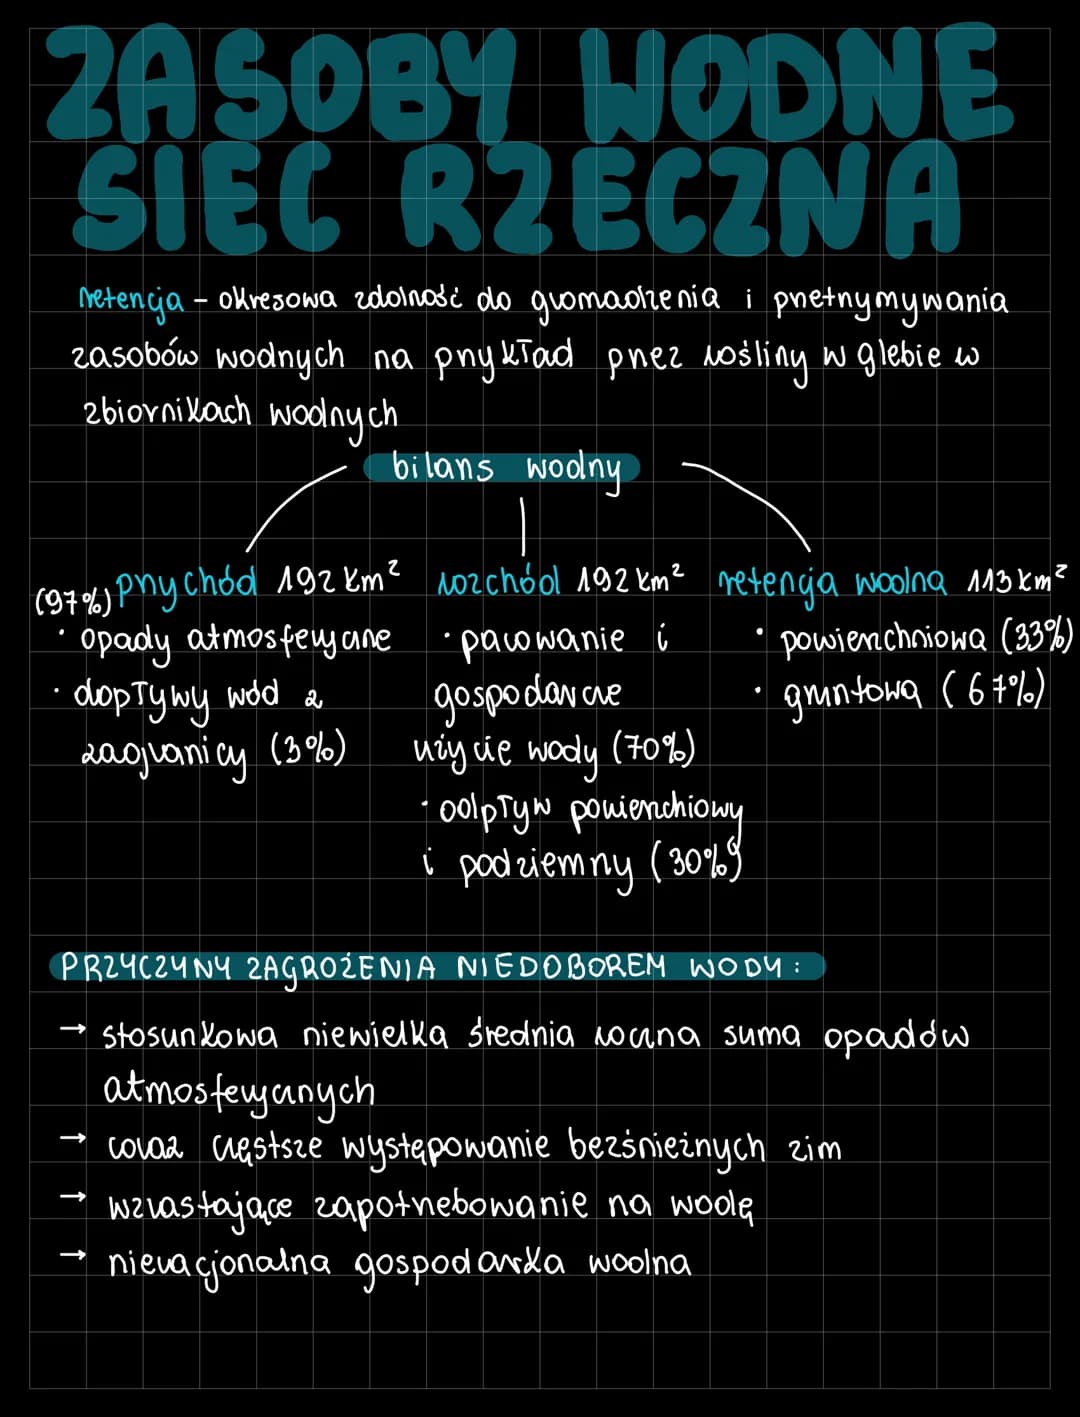 ZASOBY WODNE
SIEĆ RZECZNA
retencja - okresowa zdolność do gromadzenia i przetrzymywania
zasobów wodnych na przykład przez rośliny w glebie w
zbiornikach wodnych
bilans wodny
(97%) przychód 192 km²
• opady atmosferyczne
• dopływy wód z
zagranicy (3%)
rozchód 192 km²
• parowanie i
gospodarcze
użycie wody (70%)
• odpływ powierzchiowy
i podziemny (30%)
retencja wodna 113 km²
• powierzchniowa (33%)
• gruntowa (67%)
PRZYCZYNY ZAGROŻENIA NIEDOBOREM WODY:
→ stosunkowa niewielka średnia roczna suma opadów
atmosferycznych
→ coraz częstsze występowanie bezśnieżnych zim
→ wzrastające zapotrzebowanie na wodę
→ nieracjonalna gospodarka wodna